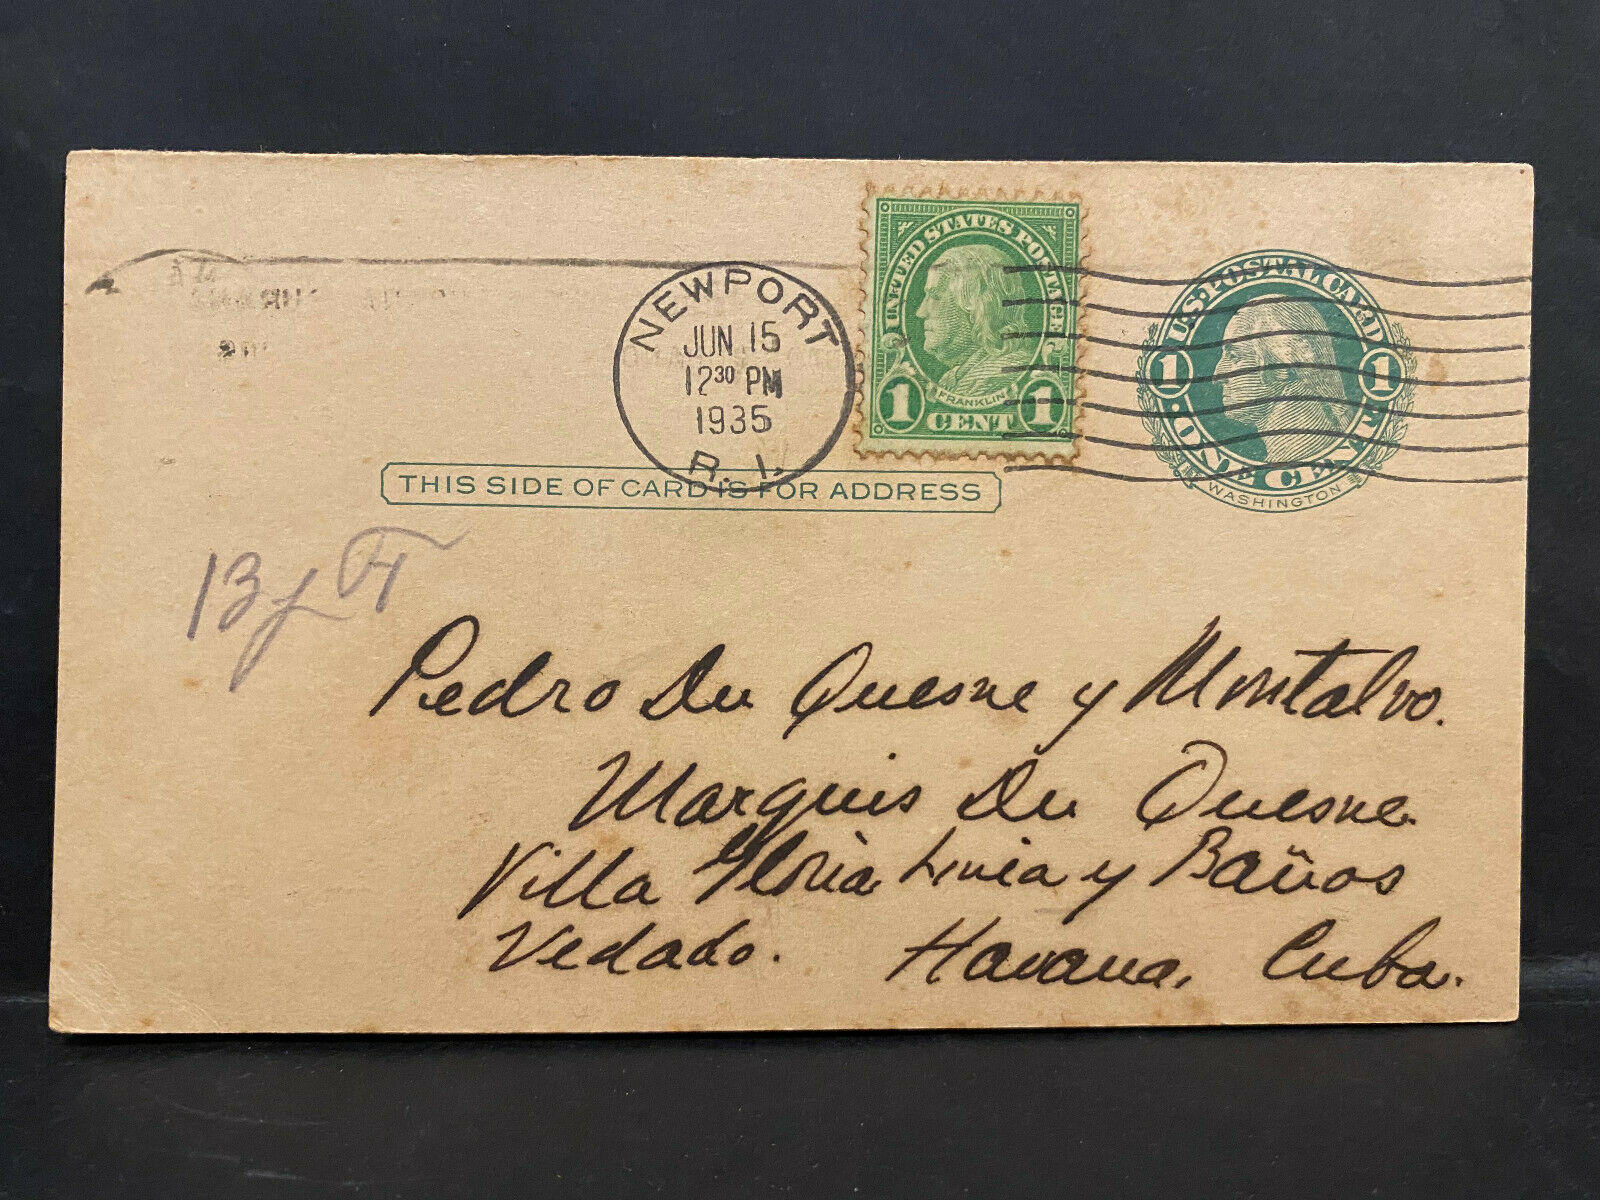 NEWPORT
JUN 15
12 30 PM
1935
R. I.
UNITED STATES POSTAGE
FRANKLIN
1 CENT 1
U.S. POSTAL CARD
1 1
ONE CENT
WASHINGTON
THIS SIDE OF CARD IS FOR ADDRESS
Pedro Du Quesne y Montalvo.
Marquis Du Quesne
Villa Gloria Linea y Baños
Vedado. Havana, Cuba.